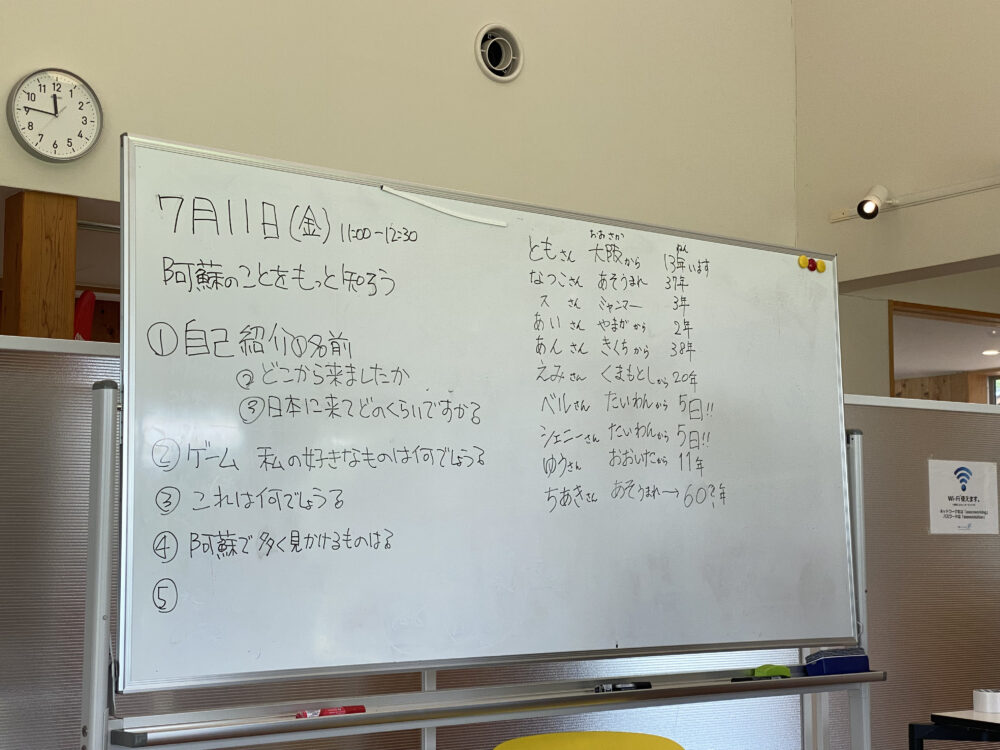 7月11日(金) 11:00-12:30
阿蘇のことをもっと知ろう
① 自己紹介 ①名前
②どこから来ましたか
③日本に来てどのくらいですかる
② ゲーム 私の好きなものは何でしょうる
③ これは何でしょうる
④ 阿蘇で多く見かけるものはる
⑤
おおさか ねん
ともさん 大阪から 13年います
なつこさん あそうまれ 37年
スさん ミャンマー 3年
あいさん やまがから 2年
あんさん きくちから 38年
えみさん くまもとしから 20年
ベルさん たいわんから 5日!!
シェニーさん たいわんから 5日!!
ゆうさん おおいたから 11年
ちあきさん あそうまれ→60?年
12 1 2 3 4 5 6 7 8 9 10 11
Wi-Fi使えます。